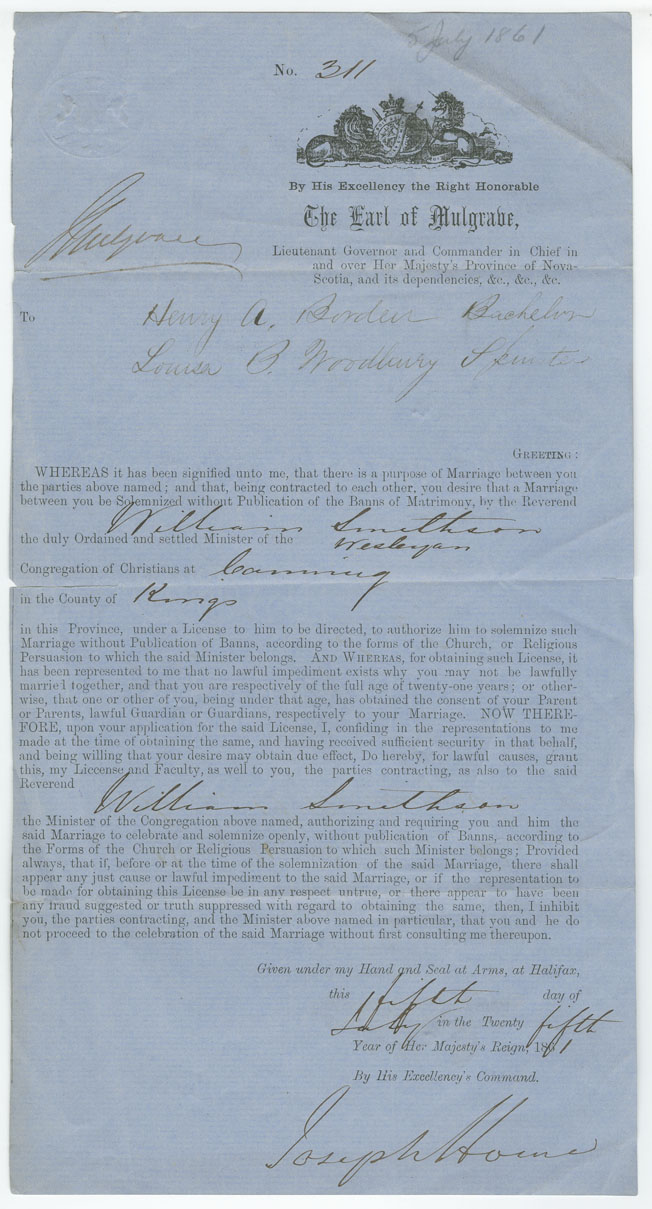 5 July 1861
No. 311
By His Excellency the Right Honorable
The Earl of Mulgrave,
Mulgrave
Lieutenant Governor and Commander in Chief in
and over Her Majesty's Province of Nova-
Scotia, and its dependencies, &c., &c., &c.
To Henry A. Borden Bachelor
Louisa B. Woodbury Spinster
GREETING:
WHEREAS it has been signified unto me, that there is a purpose of Marriage between you
the parties above named; and that, being contracted to each other, you desire that a Marriage
between you be Solemnized without Publication of the Banns of Matrimony, by the Reverend
William Smithson
the duly Ordained and settled Minister of the Wesleyan
Congregation of Christians at Canning
in the County of Kings
in this Province, under a License to him to be directed, to authorize him to solemnize such
Marriage without Publication of Banns, according to the forms of the Church, or Religious
Persuasion to which the said Minister belongs. AND WHEREAS, for obtaining such License, it
has been represented to me that no lawful impediment exists why you may not be lawfully
married together, and that you are respectively of the full age of twenty-one years; or other-
wise, that one or other of you, being under that age, has obtained the consent of your Parent
or Parents, lawful Guardian or Guardians, respectively to your Marriage. NOW THERE-
FORE, upon your application for the said License, I, confiding in the representations to me
made at the time of obtaining the same, and having received sufficient security in that behalf,
and being willing that your desire may obtain due effect, Do hereby, for lawful causes, grant
this, my Liccense and Faculty, as well to you, the parties contracting, as also to the said
Reverend
William Smithson
the Minister of the Congregation above named, authorizing and requiring you and him the
said Marriage to celebrate and solemnize openly, without publication of Banns, according to
the Forms of the Church or Religious Persuasion to which such Minister belongs; Provided
always, that if, before or at the time of the solemnization of the said Marriage, there shall
appear any just cause or lawful impediment to the said Marriage, or if the representation to
be made for obtaining this License be in any respect untrue, or there appear to have been
any fraud suggested or truth suppressed with regard to obtaining the same, then, I inhibit
you, the parties contracting, and the Minister above named in particular, that you and he do
not proceed to the celebration of the said Marriage without first consulting me thereupon.
Given under my Hand and Seal at Arms, at Halifax,
this fifth day of
July in the Twenty fifth
Year of Her Majesty's Reign, 1861
By His Excellency's Command.
Joseph Howe